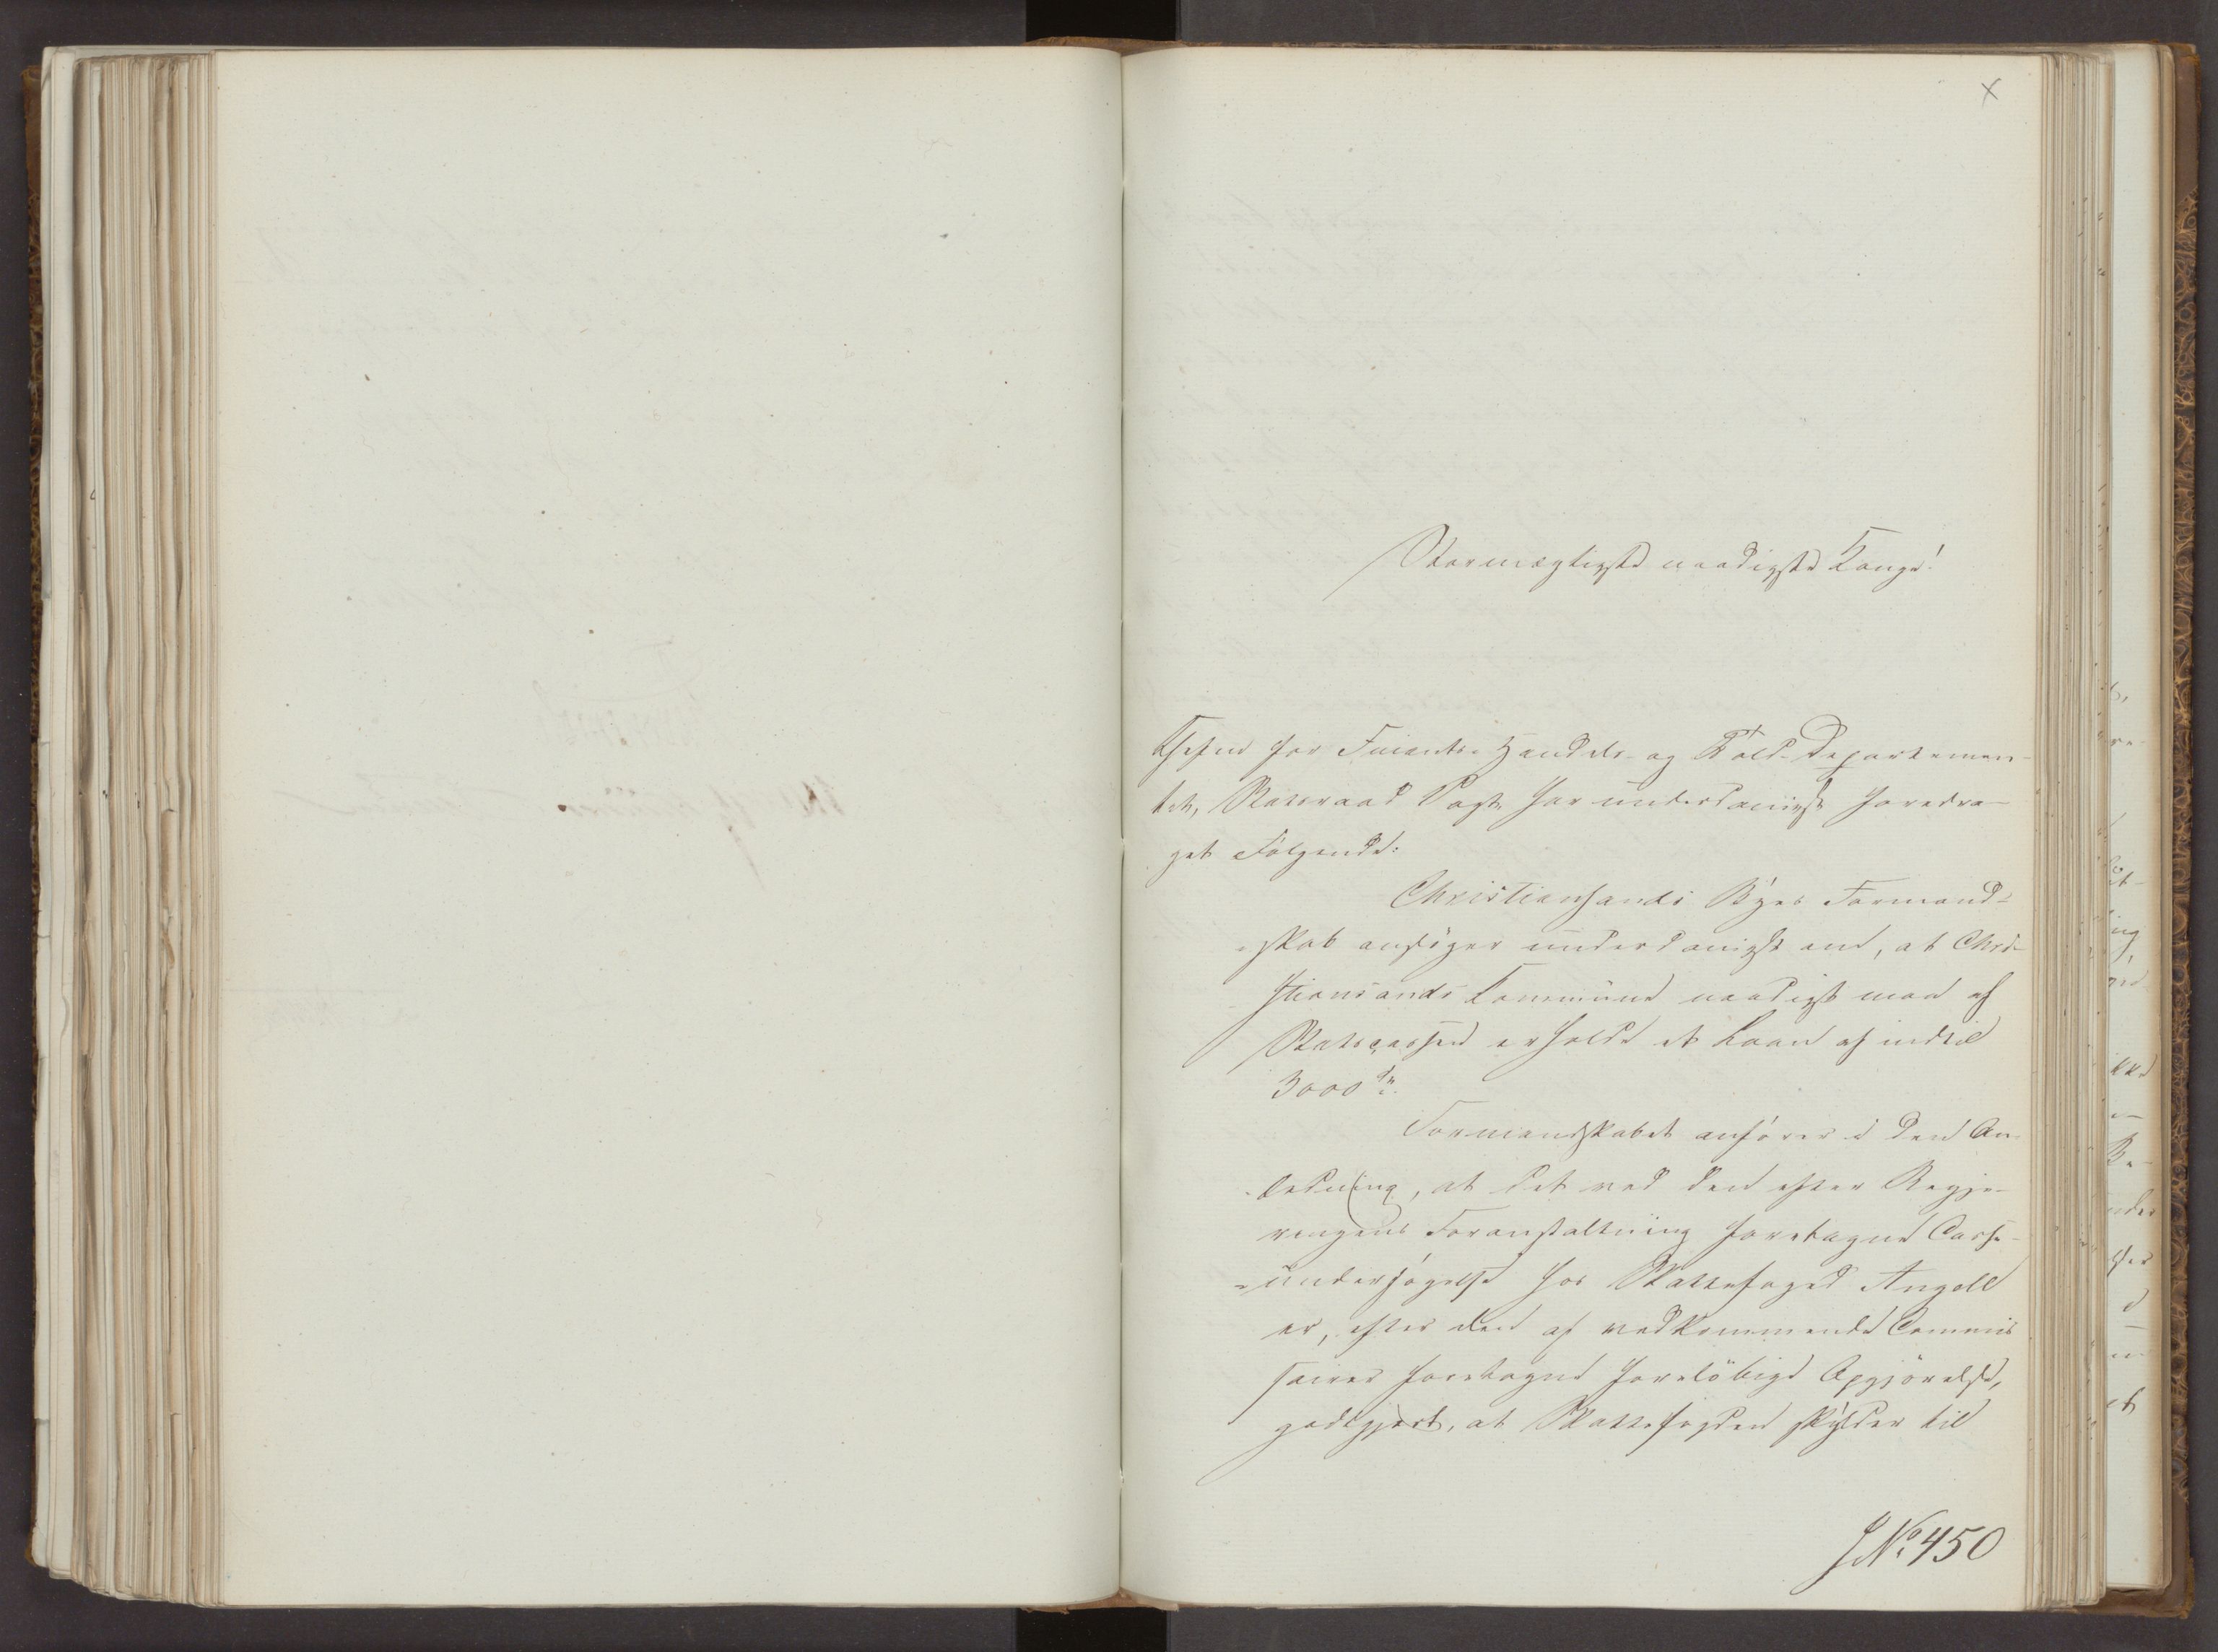 Stormægtigste naadigste Konge!
Chefen for Finants- Handels- og Told-Departemen-
tet, Statsraad Vogt har underdanigst foredra-
get Følgende:
Christiansands Byes Formand-
skab ansøger underdanigst om, at Chri-
stiansands Commune naadigst maa af
Statscassen erholde et Laan af indtil
3000 Sp.
Formandskabet anfører i den An-
ledning, at det ved den efter Regje-
ringens Foranstaltning foretagne Casse-
undersøgelse hos Skattefoged Angell
er, efter den af vedkommende Commis
sairer foretagne foreløbige Opgjørelse,
godtgjort, at Skattefogden skylder til
J.No. 450